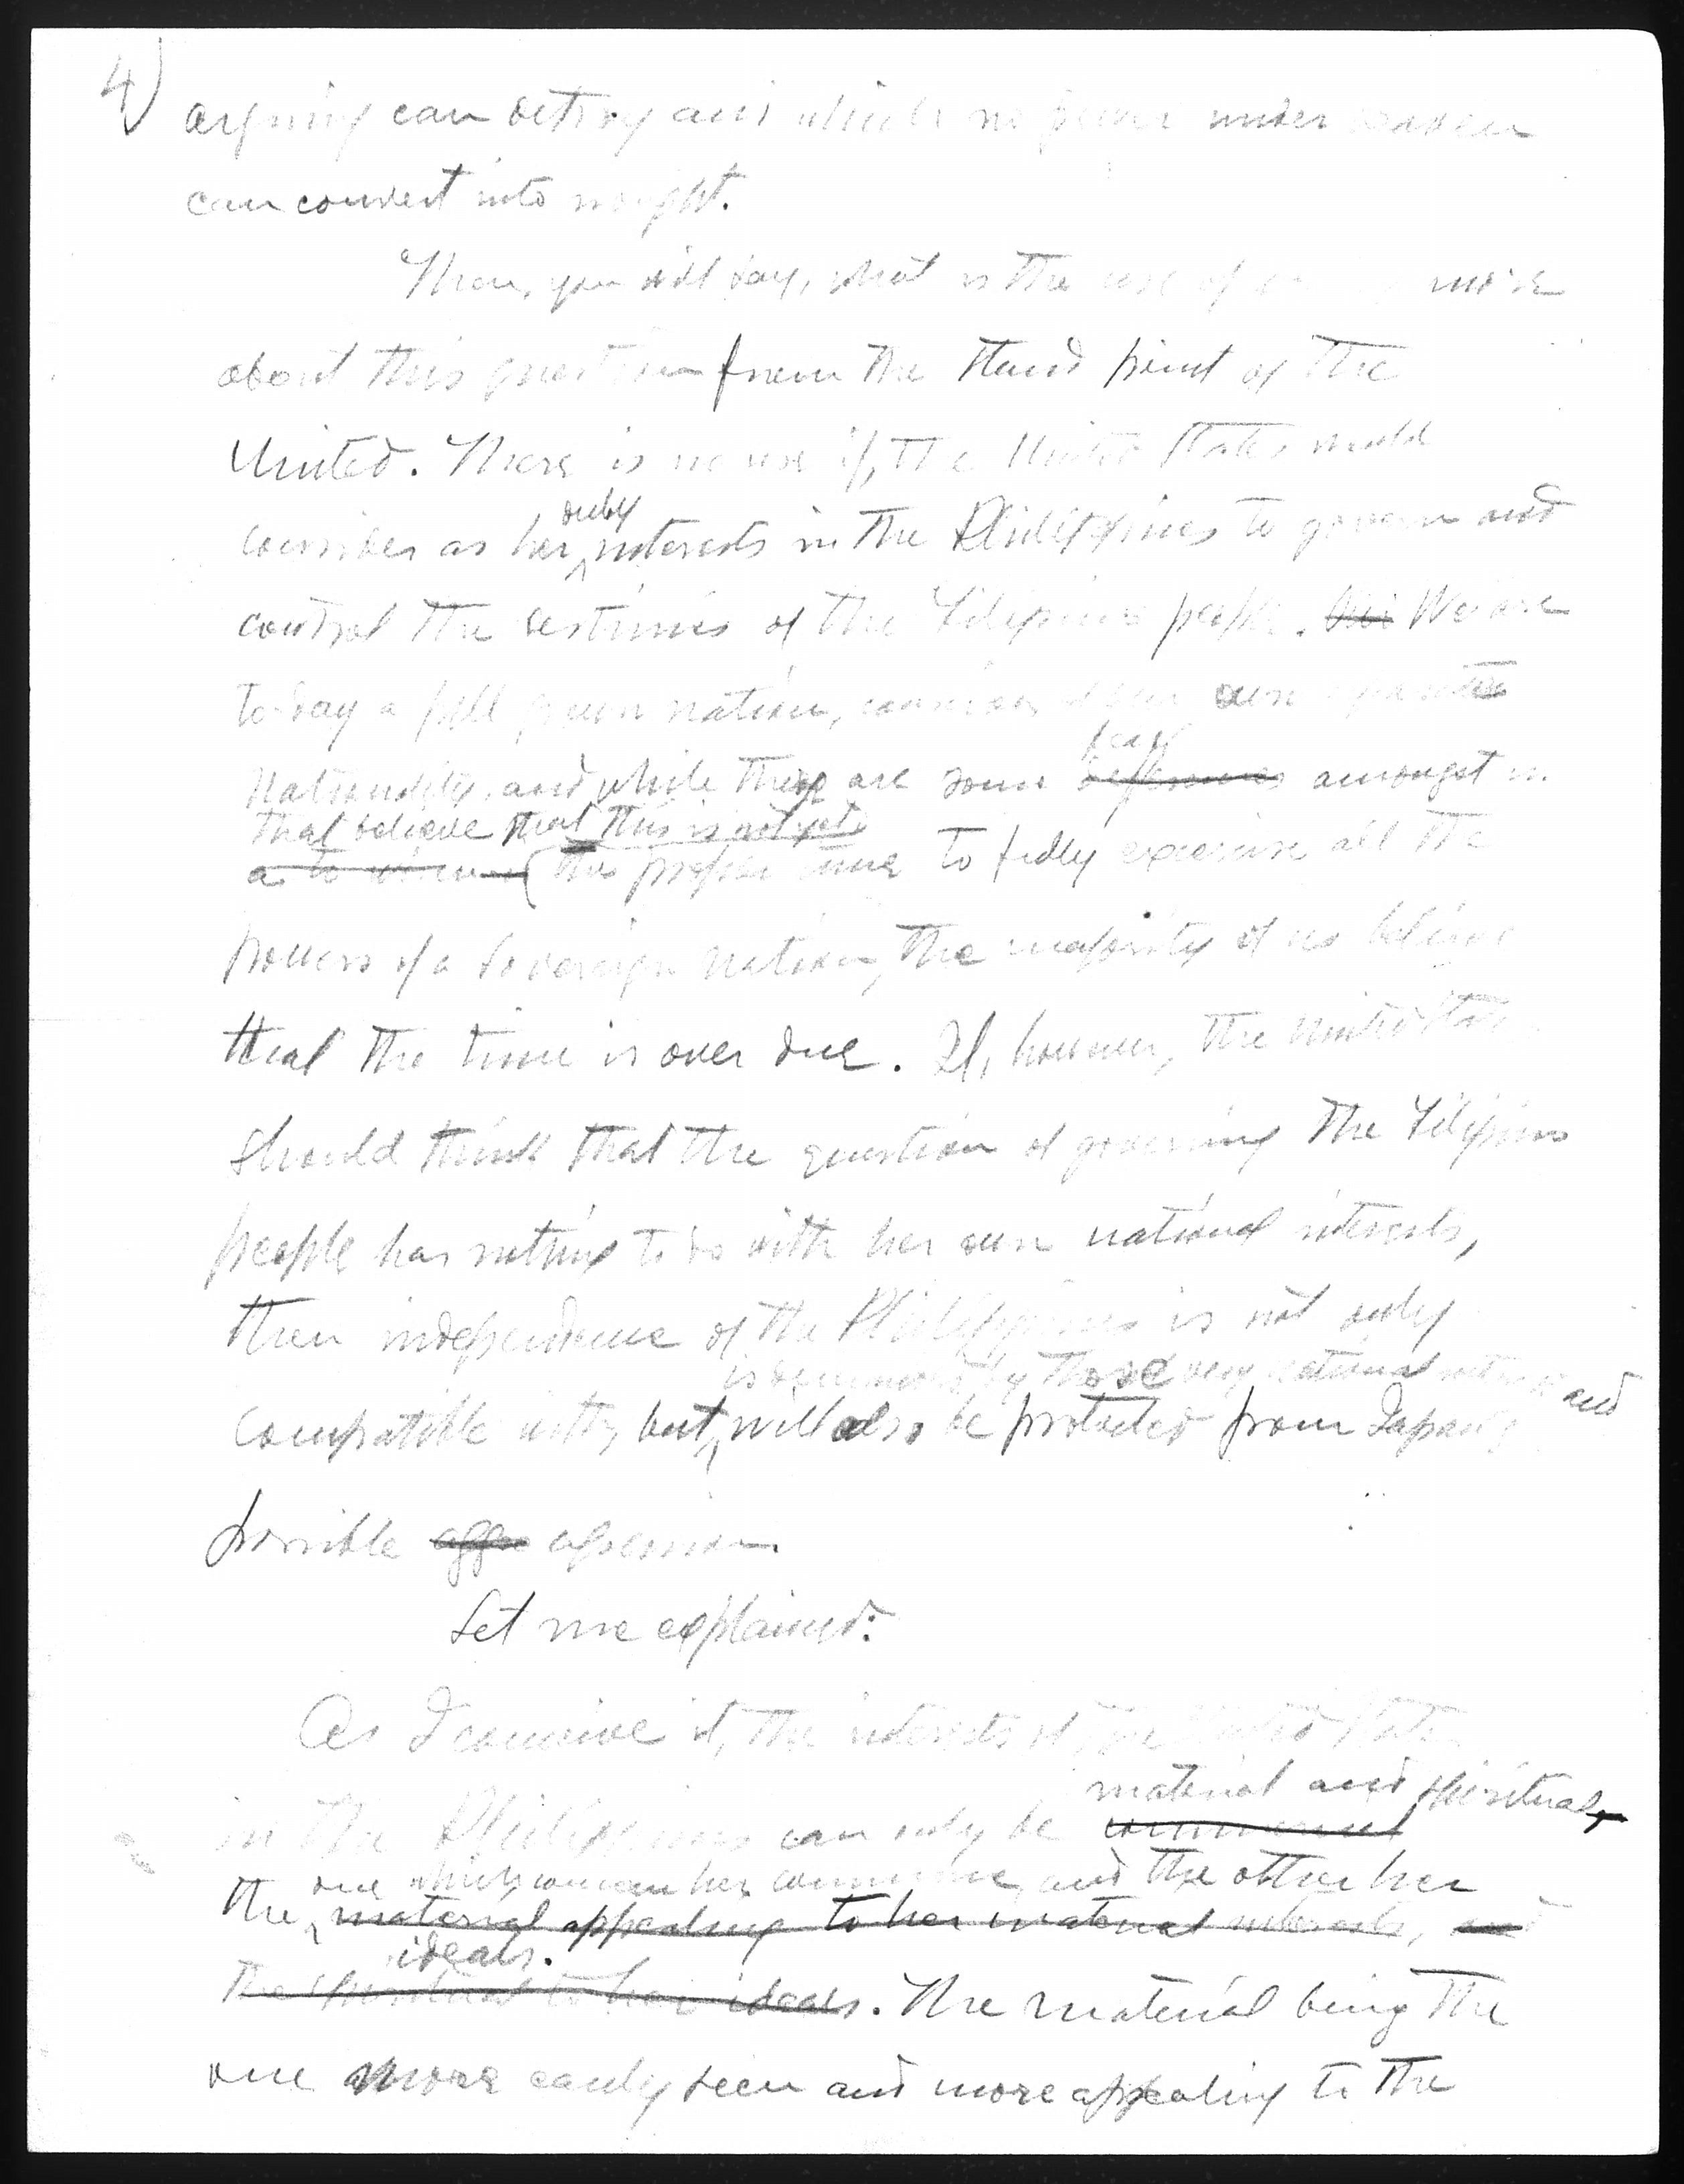 4)
arguing can destroy and which no power under heaven
can convert into nought.
Then, you will say, what is the use of more
about this question from the stand point of the
United. There is no use if, the United States would
only
consider as her interests in the Philippines to govern and
control the destinies of the Filipino people. We are
to-day a full grown nation, conscious of our own
few
nationality, and while there are some differences amongst us
that believe that this is not yet
as to when the proper time to fully exercise all the
powers of a sovereign nation, the majority of us believe
that the time is over due. If, however, the United States
should think that the question of governing the Filipino
people has nothing to do with her own national interests,
then independence of the Philippines is not only
is demanded by those very national interests and
compatible with, but will also be protected from Japan's
possible aggre agression.
Let me explained:
As I conceive it, the interests of the United States
material and spiritual,
in the Philippines can only be commercial
one which concern her commerce, and the other her
the material appealing to her material interests, and
ideals.
the spiritual to her ideals. The material being the
one more easily seen and more appealing to the